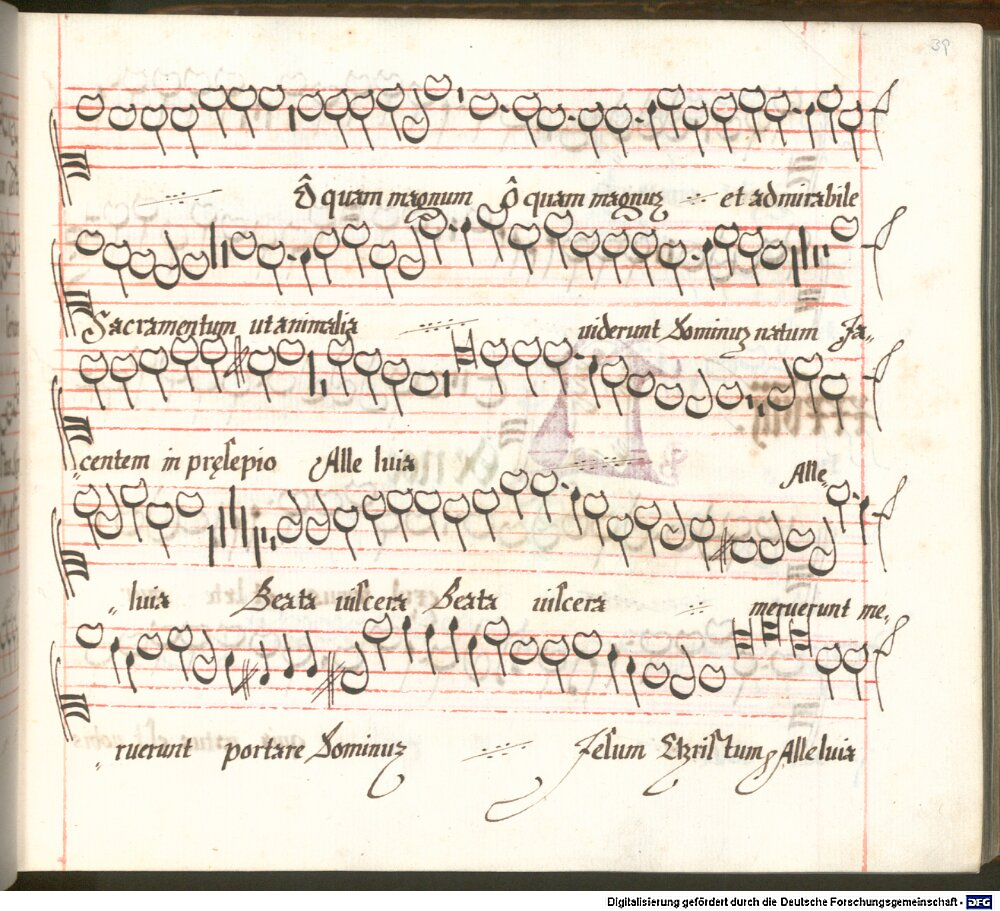 39
Ô quam magnum Ô quam magnuz et admirabile
Sacramentum ut animalia uiderunt Dominuz natum Ja„
„centem in pręsepio Alle luia Alle„
„luia Beata uiscera Beata uiscera meruerunt me„
„ruerunt portare Dominuz Jesum Chriſtum Alleluia
Digitalisierung gefördert durch die Deutsche Forschungsgemeinschaft - DFG